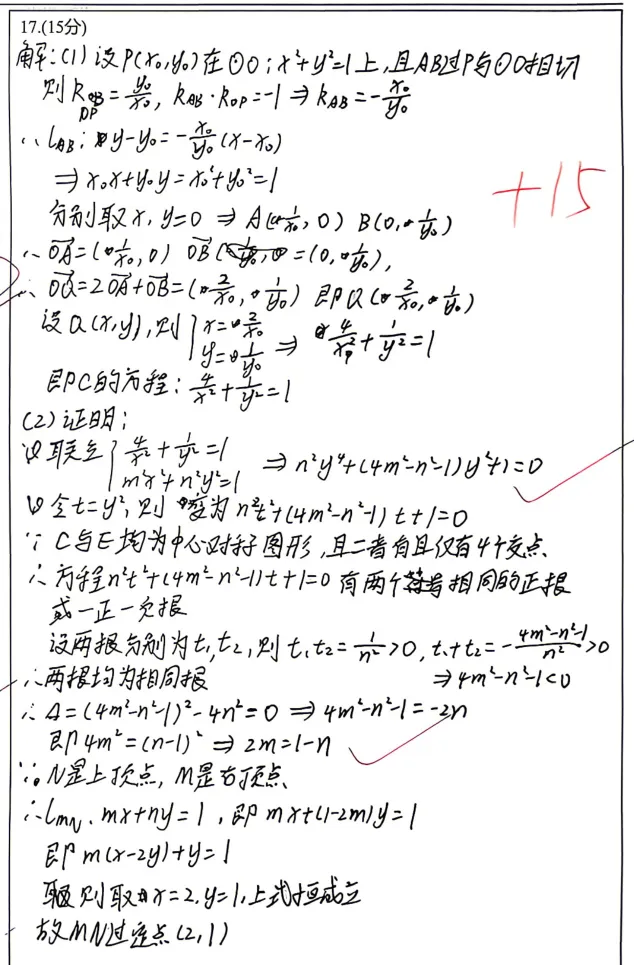 17.(15分)
解:(1)设P(x₀,y₀)在⊙O:x²+y²=1上,且AB过P与⊙O相切
则k_OP=y₀/x₀, k_AB·k_OP=-1⇒k_AB=-x₀/y₀
∴l_AB:y-y₀=-x₀/y₀(x-x₀)
⇒x₀x+y₀y=x₀²+y₀²=1
+15
分别取x,y=0 ⇒ A(1/x₀,0) B(0,1/y₀)
∴OA=(1/x₀,0) OB=(0,1/y₀),
∴OQ=2OA+OB=(2/x₀,1/y₀) 即Q(2/x₀,1/y₀)
设Q(x,y),则{x=2/x₀ y=1/y₀ ⇒ 4/x²+1/y²=1
即C的方程:4/x²+1/y²=1
(2)证明:
联立{4/x²+1/y²=1 m²x²+n²y²=1 ⇒n²y⁴+(4m²-n²-1)y²+1=0
令t=y²,则变为n²t²+(4m²-n²-1)t+1=0
∵C与E均为中心对称图形,且二者有且仅有4个交点
∴方程n²t²+(4m²-n²-1)t+1=0有两个相同的正根
或一正一负根
设两根分别为t₁,t₂,则t₁t₂=1/n²>0, t₁+t₂=-(4m²-n²-1)/n²>0
∴两根均为相同根 ⇒4m²-n²-1<0
∴Δ=(4m²-n²-1)²-4n²=0⇒4m²-n²-1=-2n
即4m²=(n-1)²⇒2m=1-n
∵N是上顶点,M是右顶点
∴l_MN:mx+ny=1,即mx+(1-2m)y=1
即m(x-2y)+y=1
则取x=2,y=1,上式恒成立
故MN过定点(2,1)